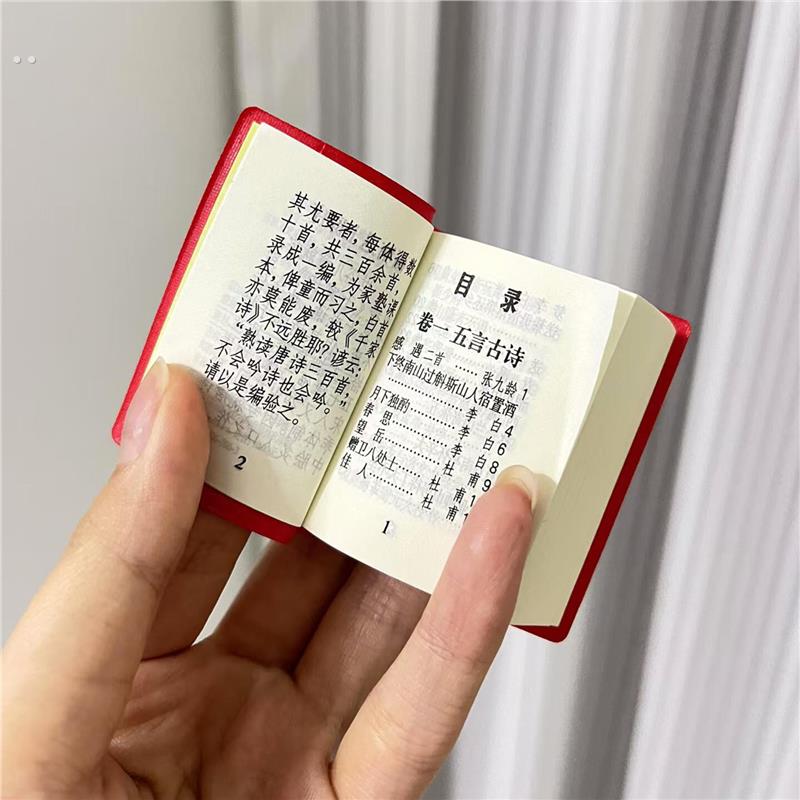 其尤要者，每体得数
十首，共三百余首，
录成一编，为家塾课
本，俾童而习之，白首
亦莫能废，较《千家
诗》不远胜耶？谚云：
“熟读唐诗三百首，
不会吟诗也会吟。”
请以是编验之。
2
目 录
卷一 五言古诗
感 遇二首 …… 张九龄 1
下终南山过斛斯山人宿置酒
………… 李 白 4
月下独酌 ……… 李 白 6
春 思 ………… 李 白 8
望 岳 ………… 杜 甫 9
赠卫八处士 …… 杜 甫 1
佳 人 ………… 杜 甫 1
1